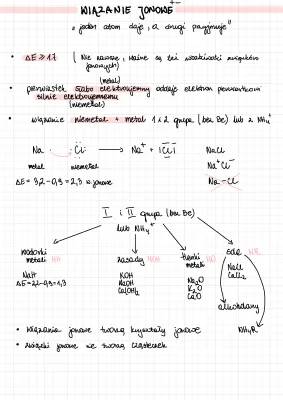 WIĄZANIE JONOWE + -
"jeden atom daje, a drugi przyjmuje"
• ΔE ≥ 1,7 ( Nie zawsze, ważne są też właściwości związków
jonowych)
(metal)
• pierwiastek słabo elektroujemny oddaje elektron pierwiastkowi
silnie elektroujemnemu
(niemetal)
• wiązanie niemetal + metal 1 i 2 grupa (bez Be) lub z NH₄⁺
Na · Cl → Na⁺ + Cl⁻ NaCl
metal niemetal Na⁺Cl⁻
ΔE = 3,2-0,9 = 2,3 w. jonowe Na-Cl
I i II grupa (bez Be)
lub NH₄⁺
wodorki metali
NaH
ΔE = 2,2-0,9 = 1,3
zasady MOH
KOH
NaOH
Ca(OH)₂
tlenki metali MO
Na₂O
K₂O
CaO
sole MR
NaCl
CaCl₂
alkoholany
NH₄R
• wiązania jonowe tworzą kryształy jonowe
• związki jonowe nie tworzą cząsteczek